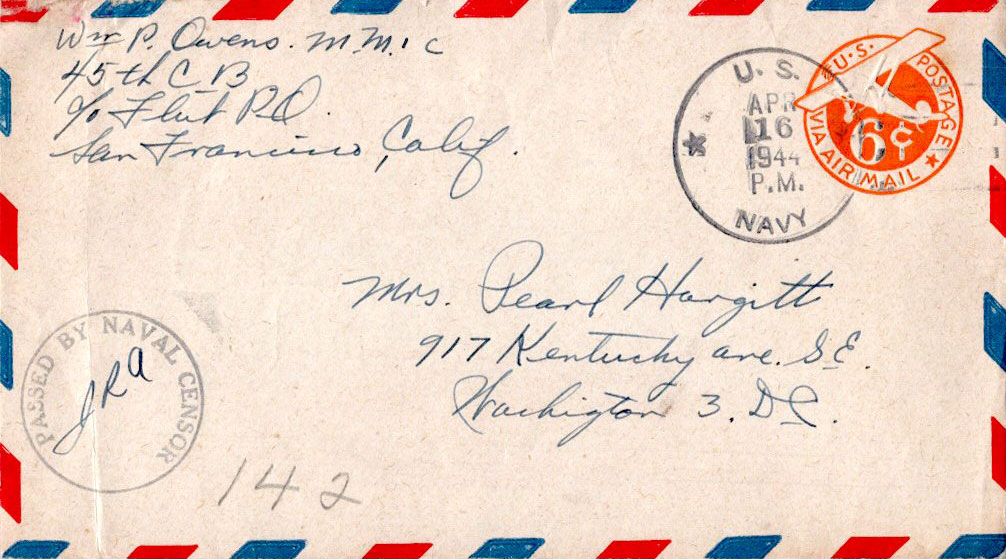 Wm P. Owens. M.M. 1 c
45th C B
c/o Fleet P.O.
San Francisco, Calif.
U. S.
APR
16
1944
P.M.
NAVY
U.S. POSTAGE
6¢
VIA AIR MAIL
Mrs. Pearl Hargitt
917 Kentucky ave. S.E.
Washington 3. D.C.
PASSED BY NAVAL CENSOR
JRA
142